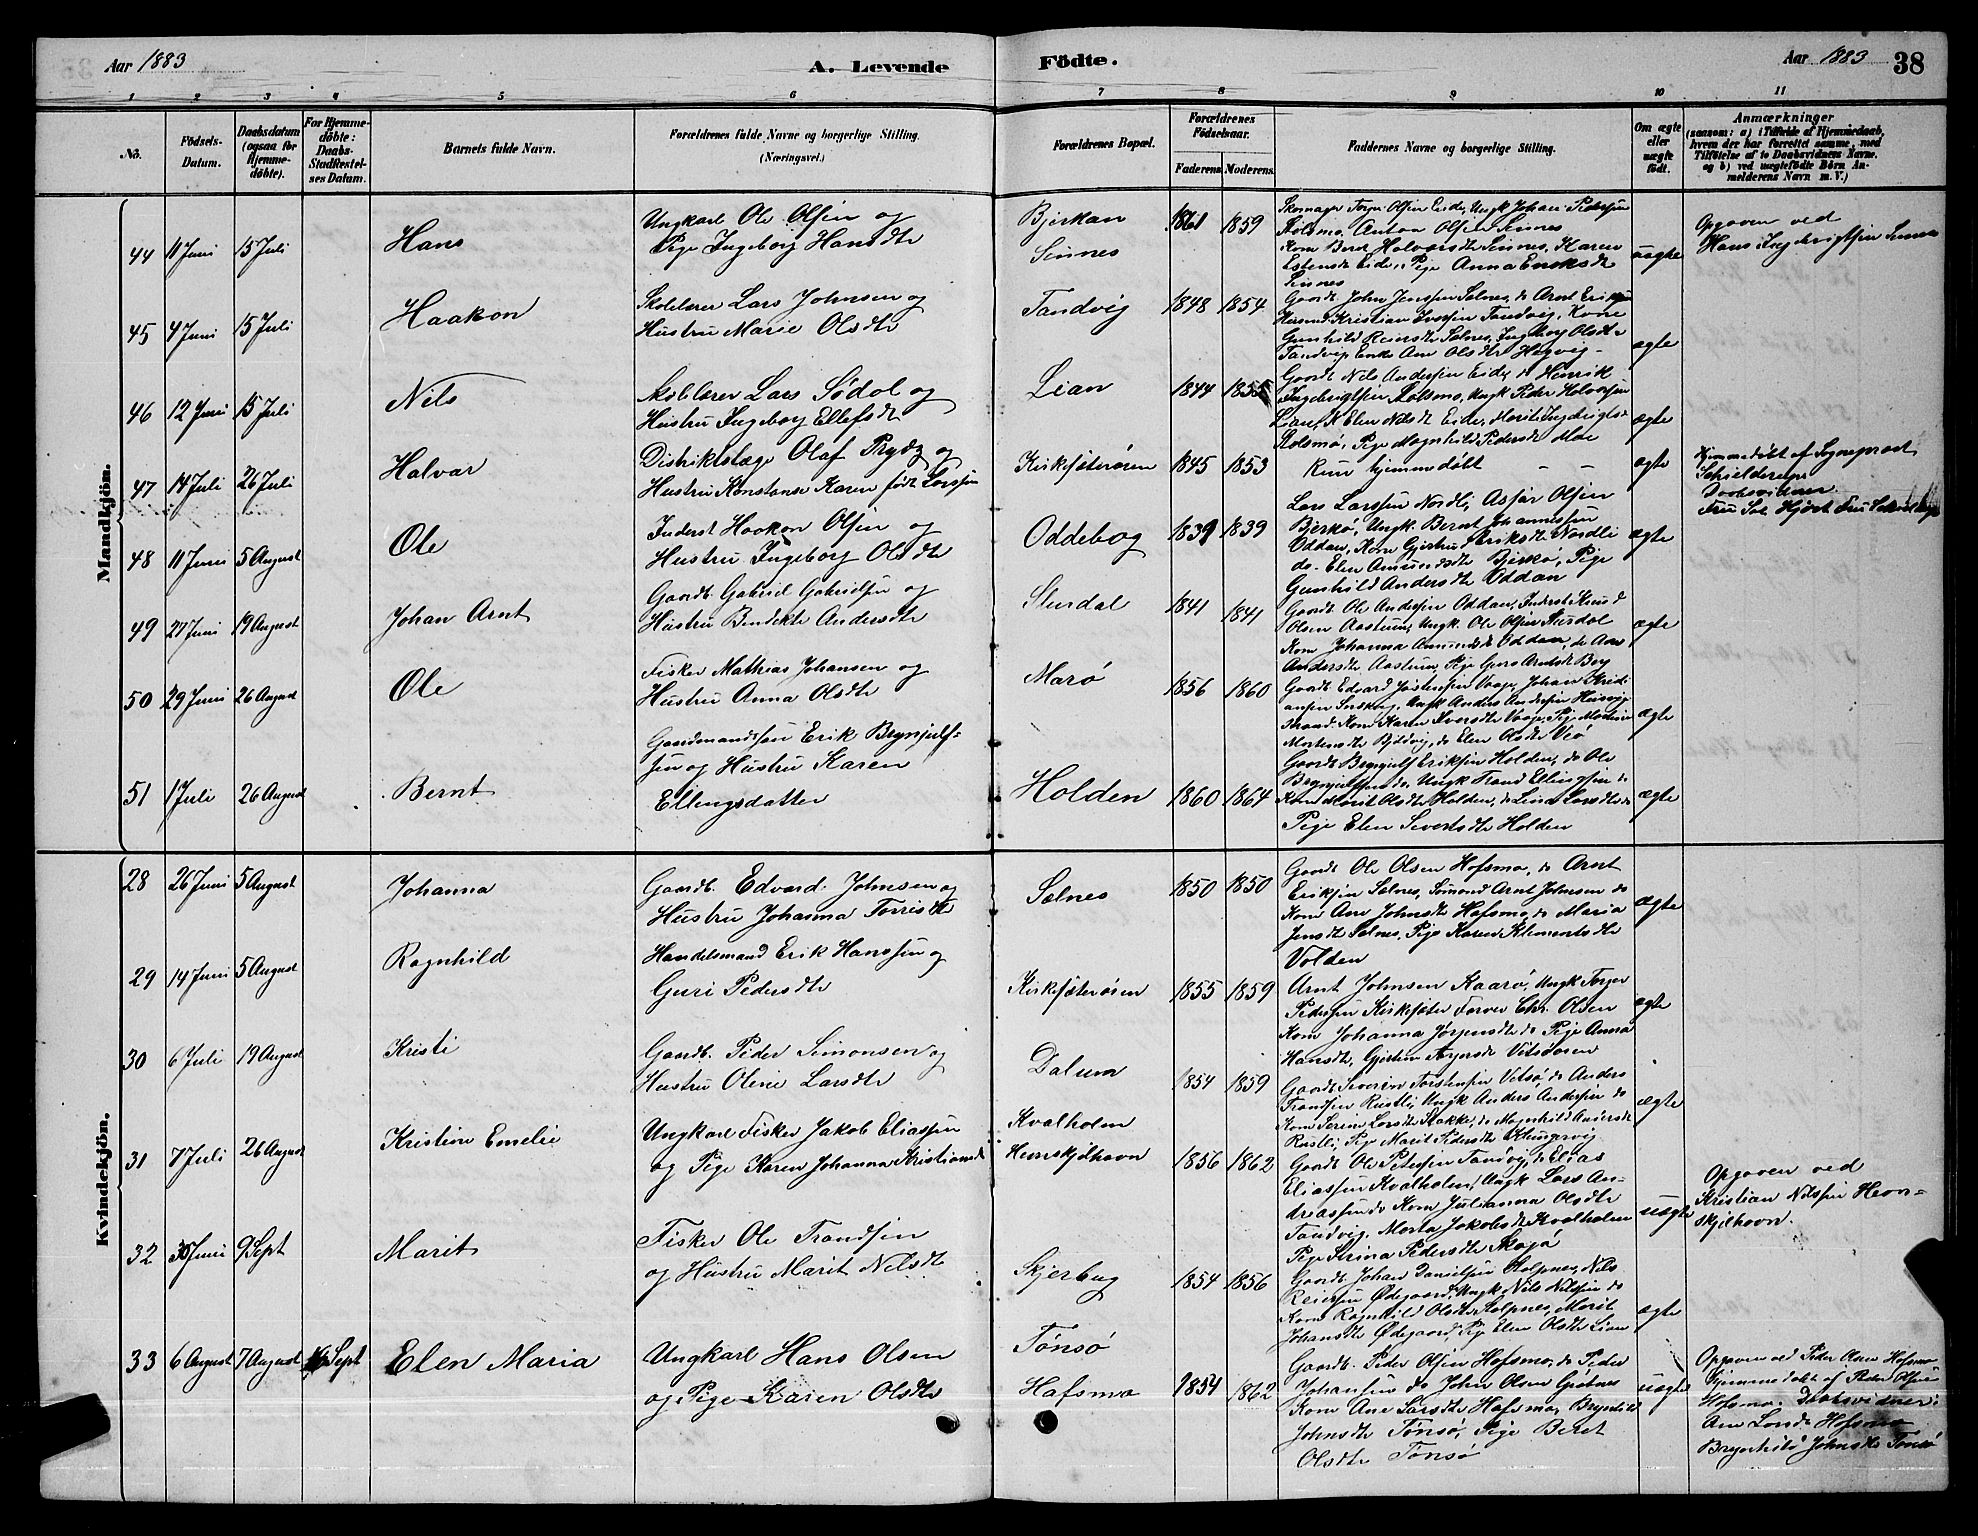 Aar 1883
A. Levende
Födte.
Aar 1883
38
1 2 3 4 5 6 7 8 9 10 11
No.
Födsels-
Datum.
Daabsdatum
(ogsaa for
Hjemme-
döbte).
For Hjemme-
döbte:
Daabs-
Stadfæstel-
ses Datum.
Barnets fulde Navn.
Forældrenes fulde Navne og borgerlige Stilling.
(Næringsvei.)
Forældrenes Bopæl.
Forældrenes
Födselsaar.
Faderens. Moderens.
Faddernes Navne og borgerlige Stilling.
Om ægte
eller
uægte
födt.
Anmærkninger
(saasom: a) i Tilfælde af Hjemmedaab,
hvem der har forrettet samme, med
Tilföielse af to Daabsvidners Navne,
og b) ved uægtefödte Börn An-
melderens Navn m. V.)
Mandkjön.
44 11 Juni 15 Juli Hans
Ungkarl Ole Olsen og
Pige Ingeborg Hansdtr
Bjerkan
Sinnes
1861 1859
Skomager Torger Olsen Eide, Ungk Johan Pedersen
Stolsmo, Anton Olsen Sinnes
Kone Beret Halvorsdtr Sinnes, Karen
Estensdtr Eide, Pige Anna Eriksdtr
Sinnes
uægte
Opgaven ved
Hans Ingebrigtsen Sinnes
45 4 Juni 15 Juli Haakon
Skolelærer Lars Johnsen og
Hustru Marie Olsdtr
Tandvig 1848 1854
Gaardb John Jensen Selnes, do Arnt Eriksen
Kristian Iversen Tandvig, Kone
Gunhild Reiersdtr Selnes, Ingeborg Olsdtr
Tandvig, Enke Ane Olsdtr Hegvig
ægte
46 12 Juni 15 Juli Nils
Skolelærer Lars Södal og
Hustru Ingeborg Ellefsdtr
Lian 1844 1855
Gaardb Nils Andersen Eide, do Henrik
Ingebrigtsen Stolsmo, Ungk Peder Halvorsen
Lian, K Elen Nilsdtr Eide, Marit Ingebrigtsd
Stolsmø, Pige Magnhild Pedersdtr Moe
ægte
47 14 Juli 26 Juli Halvar
Distriktslæge Olaf Prydz og
Hustru Konstanse Karen født Larssen
Kirksæterøren 1845 1853
Kun hjemmedöbt — —
ægte
Hjemmedöbt af Sogneprest
Schielderup
Daabsvidner
48 11 Juni 5 August Ole
Inderst Haakon Olsen og
Hustru Ingeborg Olsdtr
Oddebog 1839 1839
Lars Larssen Nordli, Olsen
Bjerkø, Ungk. Bernt Johannessen
Oddan, Kone Gjertru Eriksdtr Nordli
do. Elen Amundsdtr Bjerkø, Pige
Gunhild Andersdtr Oddan
ægte
49 27 Juni 19 August Johan Arnt
Gaardb. Gabriel Gabrielsen og
Hustru Bendekte Andersdtr
Stordal 1841 1841
Gaardb Ole Andersen Oddan, Inderst Knud
Olsen Aastum, Ungk. Ole Olsen Stordal
Kone Johanna Amundsdtr Oddan, do Ane
Andersdtr Aastum, Pige Guro Arntsdtr Berg
ægte
50 29 Juni 26 August Ole
Fisker Mathias Johansen og
Hustru Anna Olsdtr
Marø 1856 1860
Gaardb Edvard Jostensen Vaage, Johan Kristi-
ansen Ungk Anders Andersen
Strand, Kone Karen Iversdtr Vaage, Pige
Mortensdtr do Elen Olsdtr Veø
ægte
51 1 Juli 26 August Bernt
Gaardmandssøn Erik Brynjulf-
sen og Hustru Karen
Ellingsdatter
Holden 1860 1864
Gaardb Brynjulf Eriksen Holden, do Ole
Brynjulfsen do, Ungk Trond Ellingsen do
Kone Marit Olsdtr Holden, do Larsdtr do
Pige Elen Sivertsdtr Holden
ægte
Kvindekjön.
28 26 Juni 5 August Johanna
Gaardb. Edvard Johnsen og
Hustru Johanna Torrisdtr
Selnes 1850 1850
Gaardb Ole Olsen Hofsmo, do Arnt
Eriksen Selnes, Sømand Arnt Johnsen do
Kone Ane Johnsdtr Hofsmo, do Maria
Jensdtr Selnes, Pige Karen Klementsdtr
Volden
ægte
29 14 Juni 5 August Ragnhild
Handelsmand Erik Hanssen og
Guri Pedersdtr
Kirksæterøren 1855 1859
Arnt Johnsen Kaarø, Ungk Torger
Pedersen Kirksæter, Farver Chr. Olsen
Kone Johanna Jørgensdtr do Pige Anna
Hansdtr, Vitsøosen
ægte
30 6 Juli 19 August Kristi
Gaardb. Peder Simonsen og
Hustru Oline Larsdtr
Dalum 1854 1859
Gaardb Severin Torstensen Vitsø, do Anders
Trondsen Rustli, Ungk Anders Andersen do
Kone Larsdtr Stokke, do Magnhild Andersdtr
Rustli, Pige Marit Pedersdtr
ægte
31 7 Juli 26 August Kristine Emelie
Ungkarl Fisker Jakob Eliassen
og Pige Karen Johanna Kristiansd
Kvalholm
Hemskjelhavn
1856 1862
Gaardb Ole Petersen Tandvig, do Elias
Eliassen Kvalholm, Ungk Lars An-
dreassen do Kone Julianna Olsdtr
Tandvig, Marta Jakobsdtr Kvalholm
Pige Serina Pedersdtr
uægte
Opgaven ved
Kristian Nilssen Hem-
skjelhavn.
32 30 Juni 9 Sept Marit
Fisker Ole Trondsen
og Hustru Marit Nilsdtr
Skjerbug 1854 1856
Gaardb Johan Danielsen Stolpnes, Nils
Reiersen Ødegaard, Ungk Nils Nilssen do
Kone Ragnhild Olsdtr Stolpnes, Marit
Johansdtr Ødegaard, Pige Elen Olsdtr Lian
ægte
33 6 August 7 August Sept Elen Maria
Ungkarl Hans Olsen
og Pige Karen Olsdtr
Tønsø
Hafsmo
1854 1862
Gaardb. Peder Olsen Hofsmo, do Peder
Johansen do John Olsen Grøtnes
Kone Ane Larsdtr Hofsmo, Brynhild
Johnsdtr Tønsø, Pige Beret
Olsdtr Tønsø
uægte
Opgaven ved Peder Olsen Hofsmo
Hjemmedöbt af Peder Olsen
Hofsmo. Daabsvidner:
Ane Larsdtr Hofsmo
Brynhild Johnsdtr Tønsø